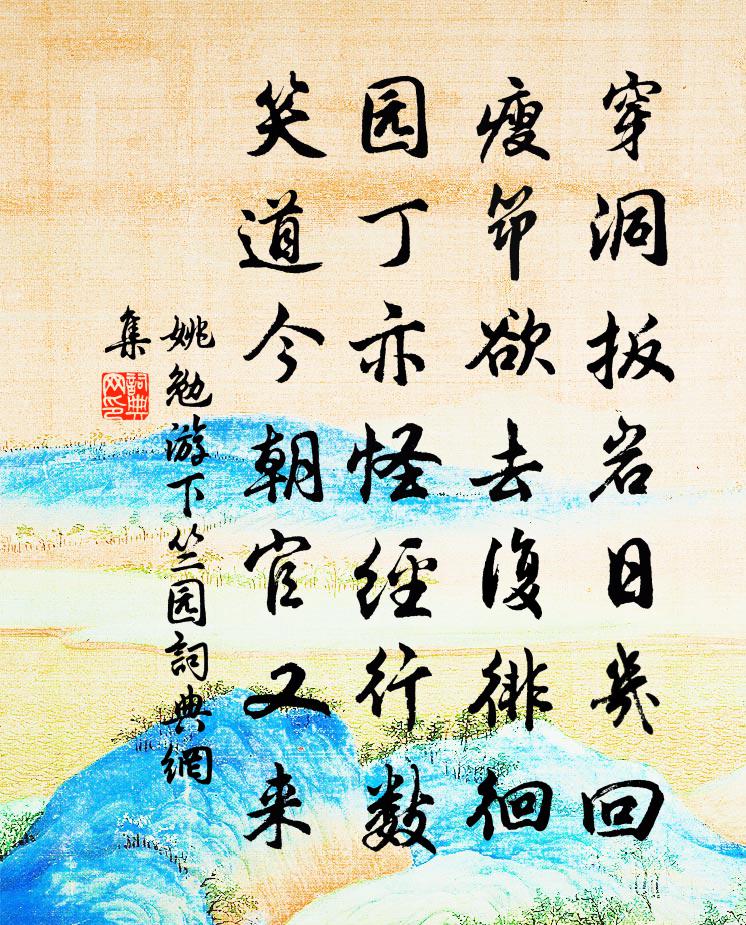 穿洞扳岩日幾回
瘦筇欲去復徘徊
园丁亦怪經行數
笑道今朝官又来
姚勉游下竺园詞典網
集
詞典
网印